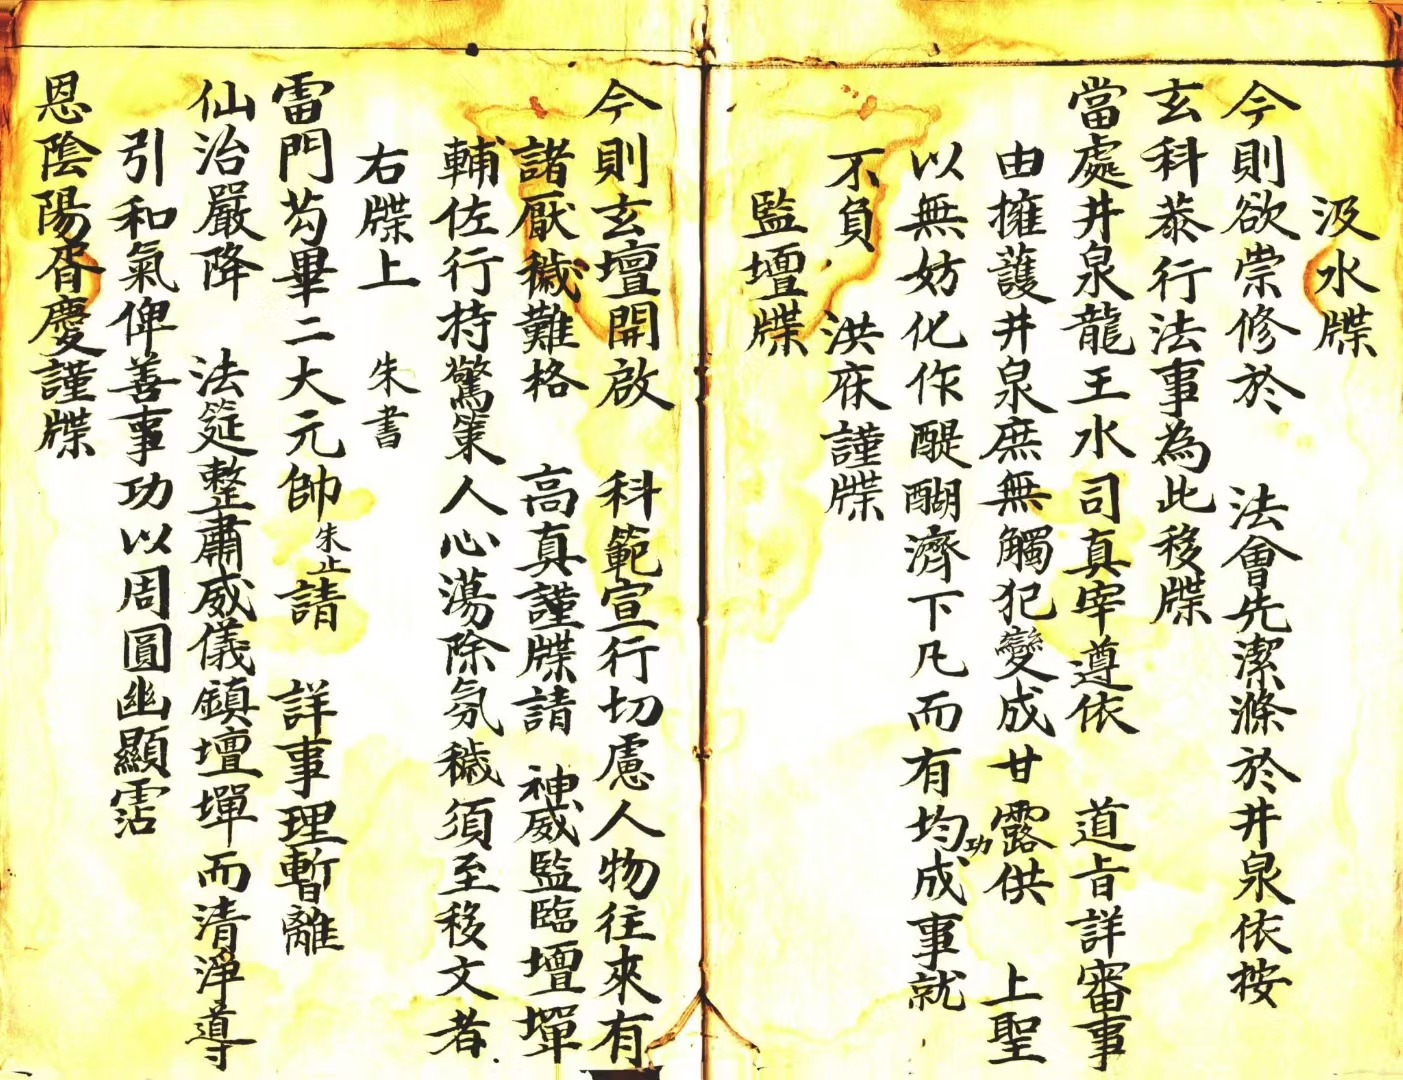 汲水牒
今則欲崇修於 法會先潔滌於井泉依按
玄科恭行法事為此移牒
當處井泉龍王水司真宰遵依 道旨詳審事
由擁護井泉庶無觸犯變成甘露供 上聖
以無妨化作醍醐濟下凡而有均功成事就
不負 洪庥謹牒
監壇牒
今則玄壇開啟 科範宣行切慮人物往來有
諸厭穢難格 高真謹牒請 神威監臨壇墠
輔佐行持驚策人心蕩除氛穢須至移文者
右牒上 朱書
雷門茍畢二大元帥朱止請 詳事理暫離
仙治嚴降 法筵整肅威儀鎮壇墠而清淨導
引和氣俾善事功以周圓幽顯霑
恩陰陽胥慶謹牒